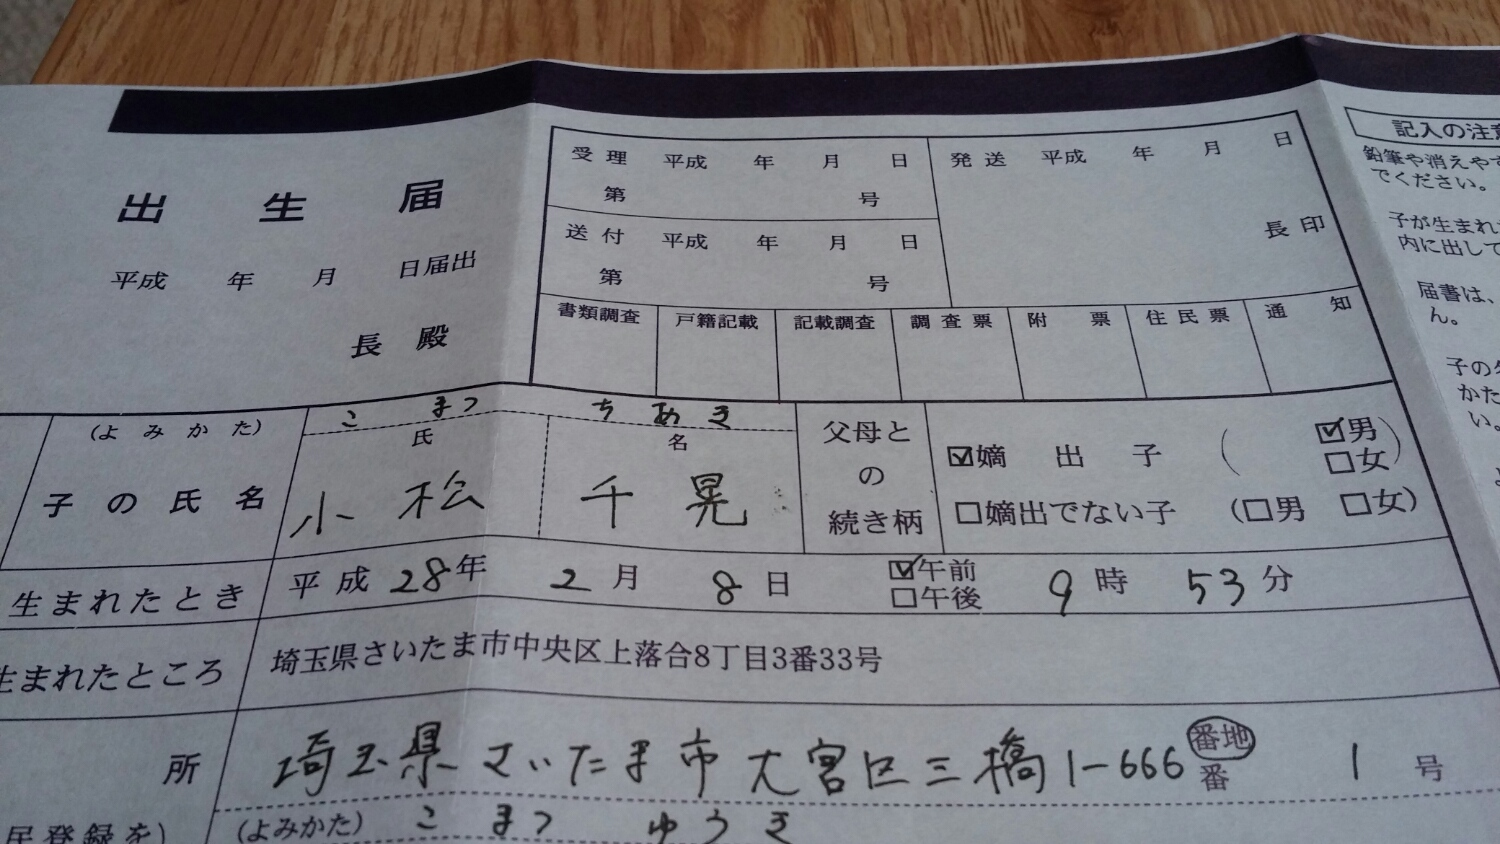 出生届
平成 年 月 日届出
長 殿
受理 平成 年 月 日
第 号
送付 平成 年 月 日
第 号
発送 平成 年 月 日
長印
書類調査 戸籍記載 記載調査 調査票 附票 住民票 通知
記入の注意
鉛筆や消えやす
でください。
子が生まれ
内に出して
届書は、
ん。
子の
かた
い。
(よみかた) こまつ ちあき
子の氏名
氏 名
小松 千晃
父母と
の
続き柄
☑嫡出子 ( ☑男 □女)
□嫡出でない子 (□男 □女)
生まれたとき 平成28年 2月 8日 ☑午前 □午後 9時 53分
生まれたところ 埼玉県さいたま市中央区上落合8丁目3番33号
所 埼玉県さいたま市大宮区三橋1-666 番地 番 1号
民登録を)
(よみかた) こまつ ゆうき